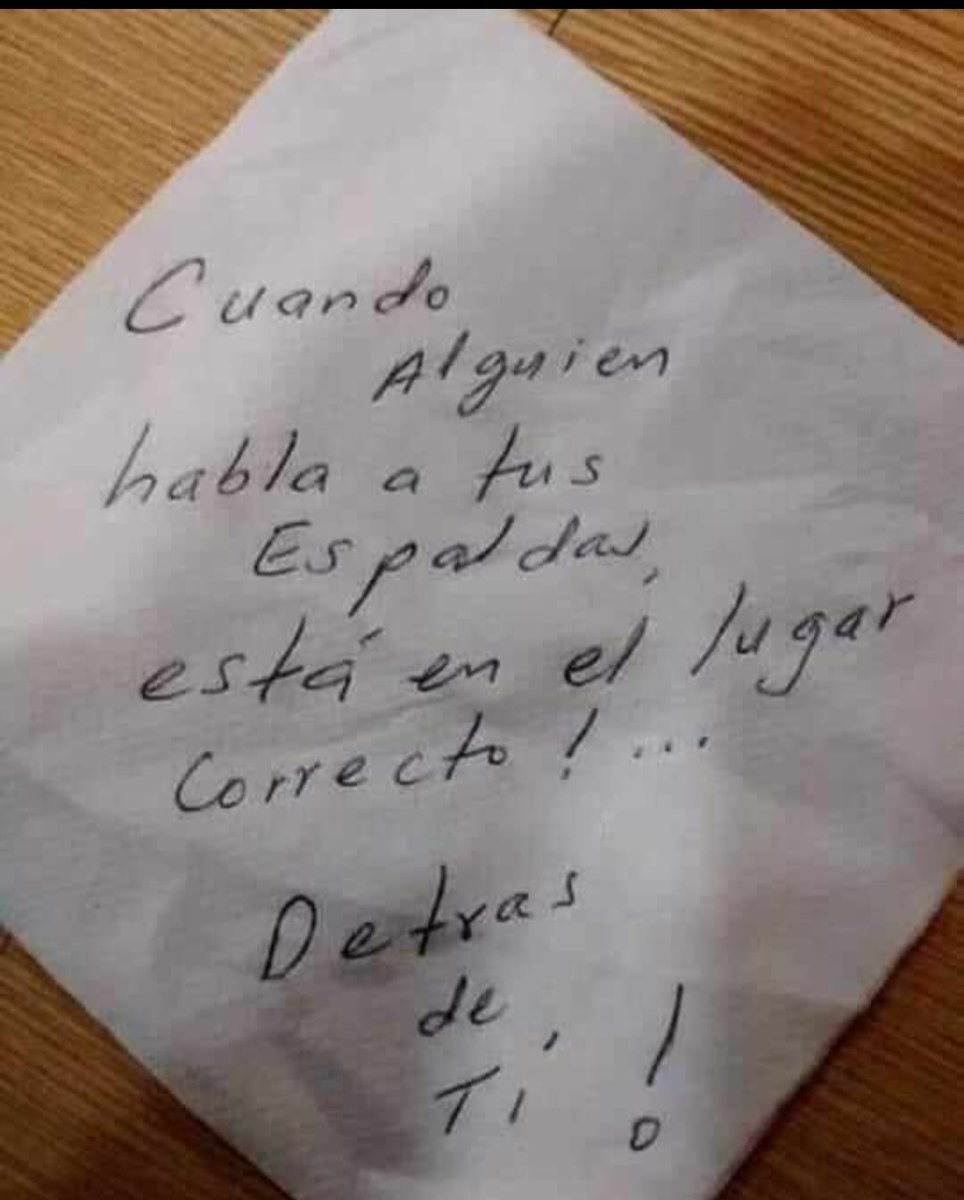 Cuando
Alguien
habla a tus
Espaldas,
está en el lugar
Correcto!...
Detras
de
Tí!